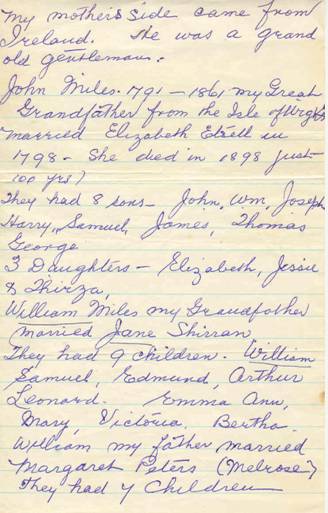 My mothers side came from
Ireland. He was a grand
old gentleman.
John Miles. 1791 - 1861 my Great
Grandfather from the Isle of Wight
married Elizabeth in
1798 - She died in 1898 just
100 yrs)
They had 8 sons - John, Wm, Joseph
Harry, Samuel, James, Thomas
George
3 Daughters - Elizabeth, Jessie
& Thirza,
William Miles my Grandfather
married Jane Shirran
They had 9 children. William
Samuel, Edmund, Arthur
Leonard. Emma Ann,
Mary, Victoria, Bertha.
William my father married
Margaret Peters (Melrose)
They had 4 Children